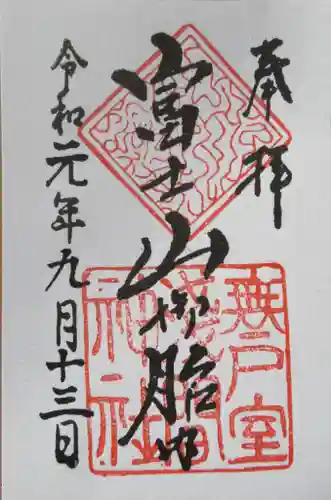 奉拝
富士山御胎内
令和元年九月十三日
無戸室
浅間
神社